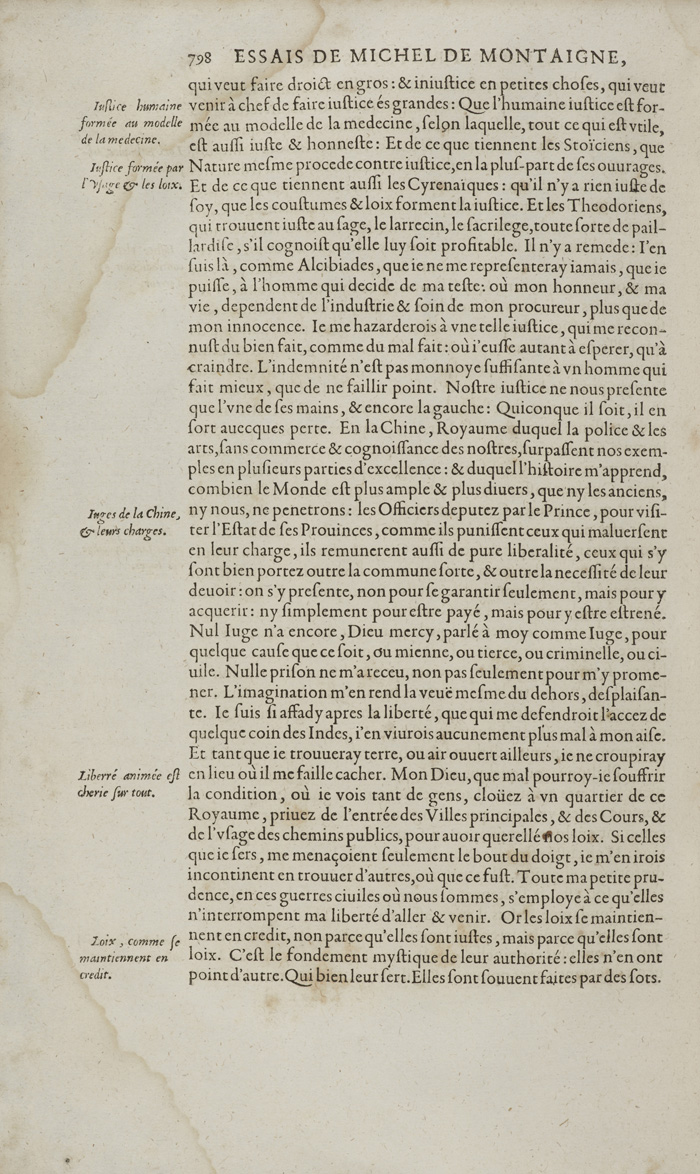 798 ESSAIS DE MICHEL DE MONTAIGNE,
qui veut faire droict en gros : & iniuſtice en petites choſes, qui veut
venir à chef de faire iuſtice és grandes : Que l'humaine iuſtice eſt for-
mée au modelle de la medecine, ſelon laquelle, tout ce qui eſt vtile,
eſt auſſi iuſte & honneſte : Et de ce que tiennent les Stoïciens, que
Nature meſme procede contre iuſtice, en la pluſ-part de ſes ouurages.
Et de ce que tiennent auſſi les Cyrenaïques : qu'il n'y a rien iuſte de
ſoy, que les couſtumes & loix forment la iuſtice. Et les Theodoriens,
qui trouuent iuſte au ſage, le larrecin, le ſacrilege, toute ſorte de pail-
lardiſe, s'il cognoiſt qu'elle luy ſoit profitable. Il n'y a remede : I'en
ſuis là, comme Alcibiades, que ie ne me repreſenteray iamais, que ie
puiſſe, à l'homme qui decide de ma teſte : où mon honneur, & ma
vie, dependent de l'induſtrie & ſoin de mon procureur, plus que de
mon innocence. Ie me hazarderois à vne telle iuſtice, qui me recon-
nuſt du bien fait, comme du mal fait : où i'euſſe autant à eſperer, qu'à
craindre. L'indemnité n'eſt pas monnoye ſuffiſante à vn homme qui
fait mieux, que de ne faillir point. Noſtre iuſtice ne nous preſente
que l'vne de ſes mains, & encore la gauche : Quiconque il ſoit, il en
ſort auecques perte. En la Chine, Royaume duquel la police & les
arts, ſans commerce & cognoiſſance des noſtres, ſurpaſſent nos exem-
ples en pluſieurs parties d'excellence : & duquel l'hiſtoire m'apprend,
combien le Monde eſt plus ample & plus diuers, que ny les anciens,
ny nous, ne penetrons : les Officiers deputez par le Prince, pour viſi-
ter l'Eſtat de ſes Prouinces, comme ils puniſſent ceux qui maluerſent
en leur charge, ils remunerent auſſi de pure liberalité, ceux qui s'y
ſont bien portez outre la commune ſorte, & outre la neceſſité de leur
deuoir : on s'y preſente, non pour ſe garantir ſeulement, mais pour y
acquerir : ny ſimplement pour eſtre payé, mais pour y eſtre eſtrené.
Nul Iuge n'a encore, Dieu mercy, parlé à moy comme Iuge, pour
quelque cauſe que ce ſoit, ou mienne, ou tierce, ou criminelle, ou ci-
uile. Nulle priſon ne m'a receu, non pas ſeulement pour m'y prome-
ner. L'imagination m'en rend la veuë meſme du dehors, deſplaiſan-
te. Ie ſuis ſi affady apres la liberté, que qui me defendroit l'accez de
quelque coin des Indes, i'en viurois aucunement plus mal à mon aiſe.
Et tant que ie trouueray terre, ou air ouuert ailleurs, ie ne croupiray
en lieu où il me faille cacher. Mon Dieu, que mal pourroy-ie ſouffrir
la condition, où ie vois tant de gens, cloüez à vn quartier de ce
Royaume, priuez de l'entrée des Villes principales, & des Cours, &
de l'vſage des chemins publics, pour auoir querellé nos loix. Si celles
que ie ſers, me menaçoient ſeulement le bout du doigt, ie m'en irois
incontinent en trouuer d'autres, où que ce fuſt. Toute ma petite pru-
dence, en ces guerres ciuiles où nous ſommes, s'employe à ce qu'elles
n'interrompent ma liberté d'aller & venir. Or les loix ſe maintien-
nent en credit, non parce qu'elles ſont iuſtes, mais parce qu'elles ſont
loix. C'eſt le fondement myſtique de leur authorité : elles n'en ont
point d'autre. Qui bien leur ſert. Elles ſont ſouuent faites par des ſots.
Iuſtice humaine
formée au modelle
de la medecine.
Iuſtice formée par
l'vſage & les loix.
Iuges de la Chine,
& leurs charges.
Liberré animée eſt
cherie ſur tout.
Loix, comme ſe
maintiennent en
credit.